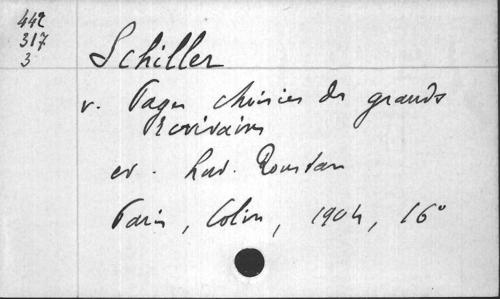 442
317
3
Schiller
v. Pages choisies des grands
Écrivains
ed. Lud. Roustan
Paris, Colin, 1904, 16°